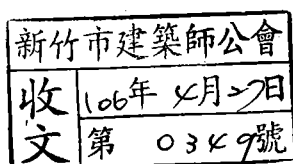 新竹市建築師公會
收文
106年4月27日
第0349號